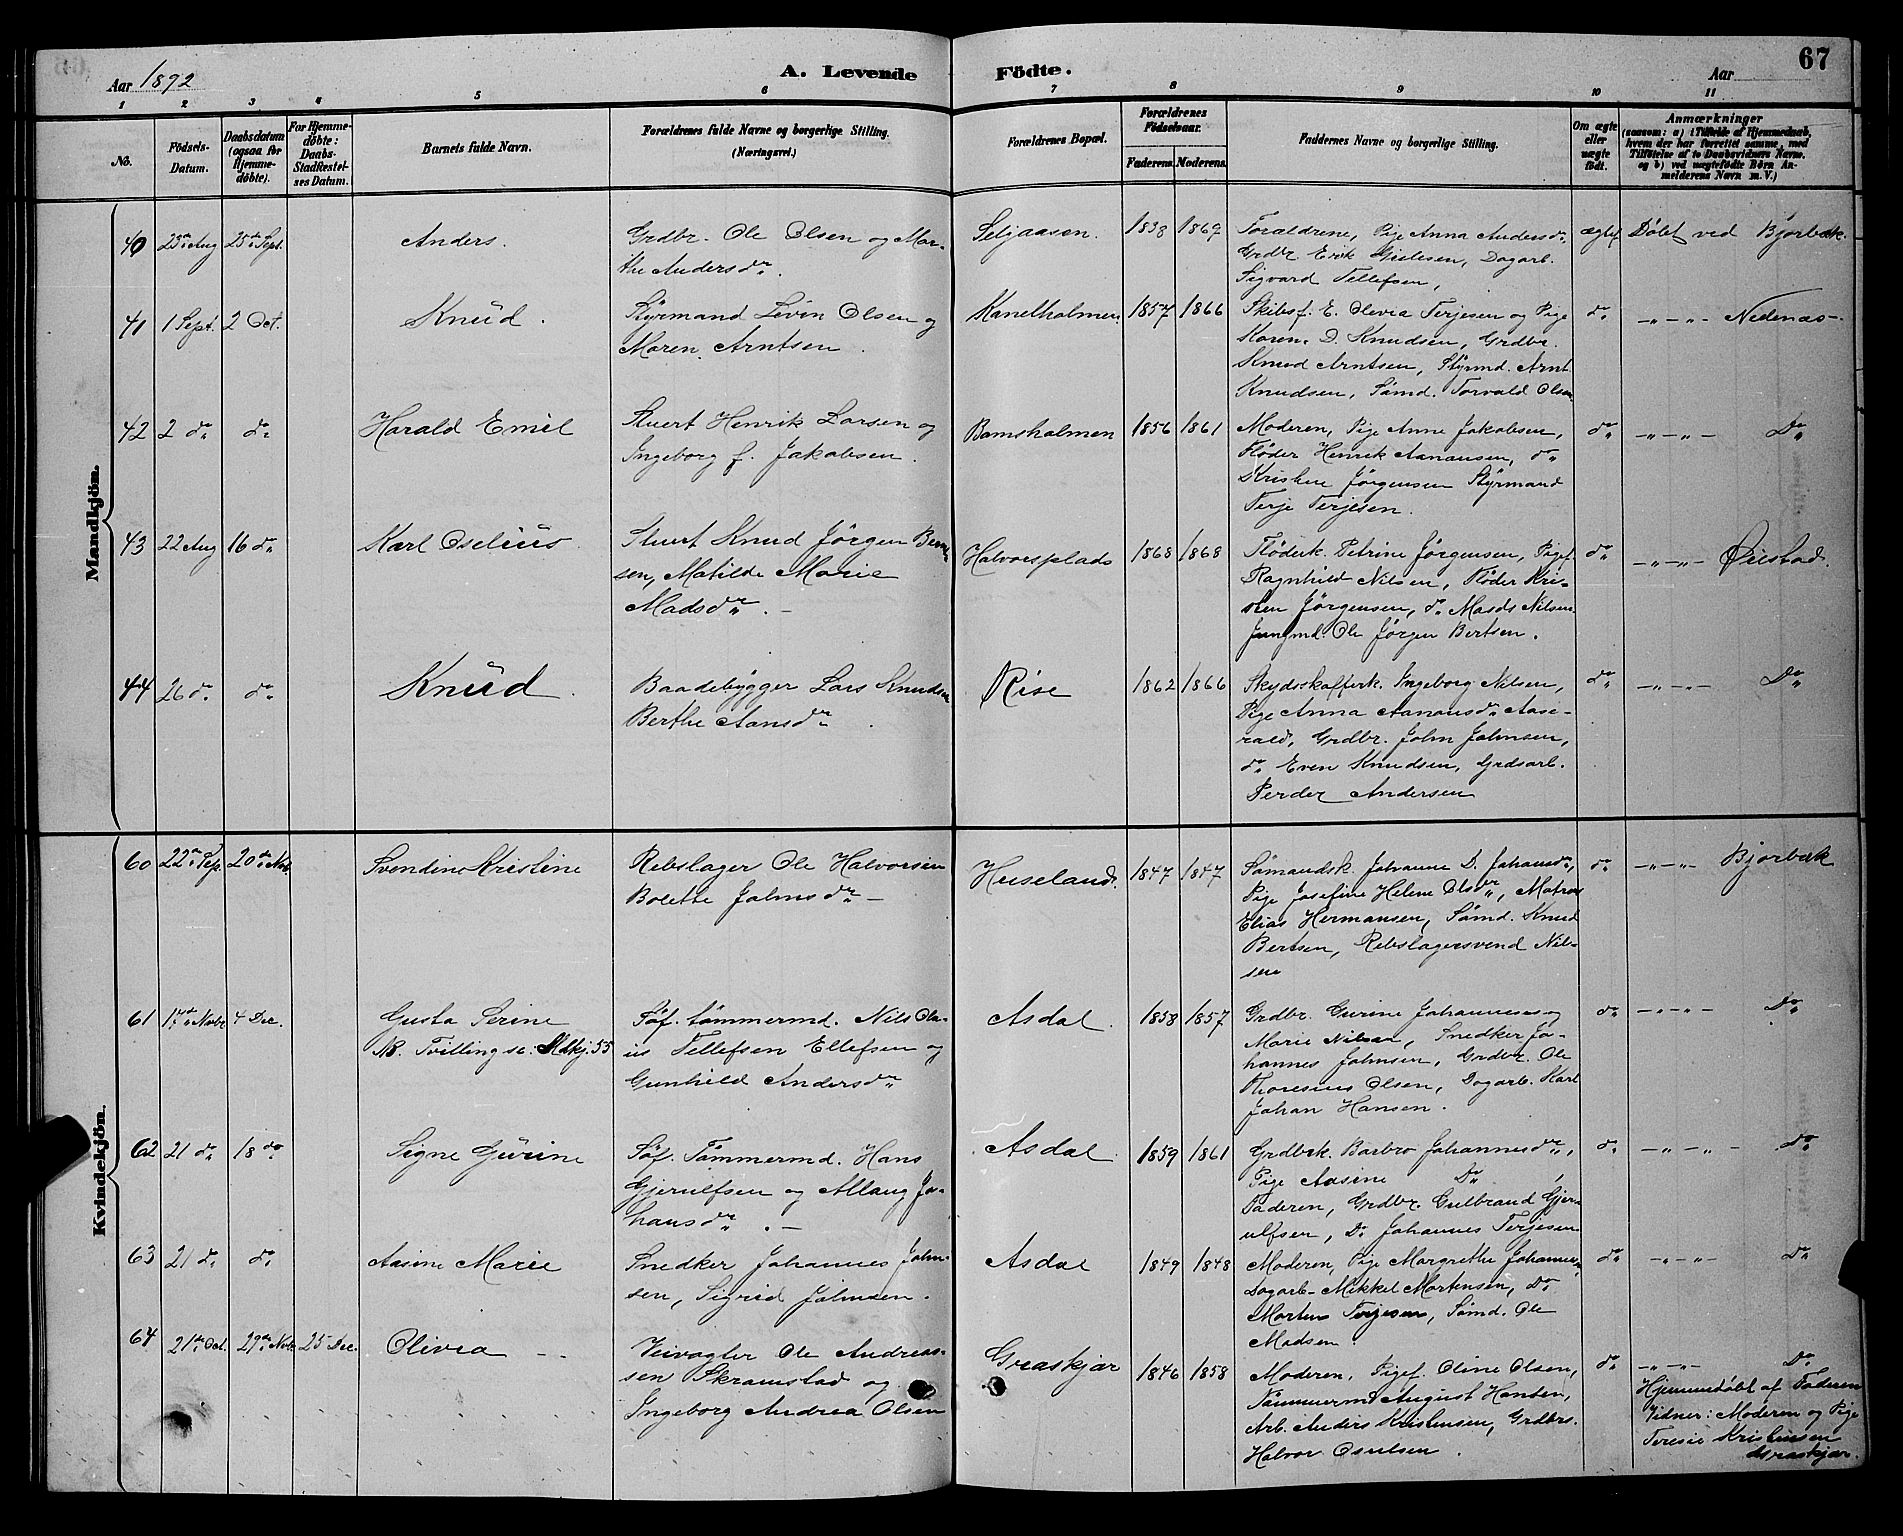 67
Aar 1892
A. Levende Födte.
Aar
1 2 3 4 5 6 7 8 9 10 11
No.
Födsels-Datum.
Daabsdatum (ogsaa for Hjemme-döbte).
For Hjemme-döbte: Daabs-Stadfæstel-ses Datum.
Barnets fulde Navn.
Forældrenes fulde Navne og borgerlige Stilling. (Næringsvei.)
Forældrenes Bopæl.
Forældrenes Födselsaar.
Faderens. Moderens.
Faddernes Navne og borgerlige Stilling.
Om ægte eller uægte födt.
Anmærkninger
(saasom: a) i Tilfælde af Hjemmedaab,
hvem der har forrettet samme, med
Tilföielse af to Daabsvidners Navne.
og b) ved uægtefödte Börn An-
melderens Navn m. V.)
Mandkjön.
40 23de Aug 25de Sept. Anders. Grdbr. Ole Olsen og Mar-
the Andersdr.
Seljaasen. 1838 1869 Forældrene, Pige Anna Andersdr.
Grdbr Erik Grelesen, Dagarb.
Sigvard Tellefsen,
ægtef Döbt ved Bjorbæk.
41 1 Sept. 2 Oct. Knud. Styrmand Lövin Olsen og
Maren. Arntsen.
Kanelholmen. 1857 1866 Skibsf. E. Olevia Terjesen og Pige
Karen. D. Knudsen, Grdbr.
Knud Arntsen, Styrmd. Arnt
Knudsen, Sømd. Torvald Olsen
do -"-"- Nedenæs-
42 2 do do Harald Emil Stuert Henrik Larsen og
Ingeborg f. Jakobsen.
Bomsholmen 1856 1861 Moderen, Pige Anne Jakobsen,
Fløder Henrik Aanansen, do
Kristine Jørgensen Styrmand
Terje Terjesen.
do -"-"- Do
43 22 Aug 16 do Karl Oselius Stuert Knud Jörgen Bernt-
sen, Matilde Marie
Madsdr. -
Halvorsplads 1868 1868 Fløderk. Petrine Jørgensen, Pigef.
Ragnhild Nilsen, Fløder Kri-
sten Jørgensen, do Mads Nilsen
Jungmd. Ole Jørgen Bertsen.
do -"-"- Øiestad.
44 26 do do Knud. Baadebygger Lars Knudsen
Berthe Aansdr.
Rise 1862 1866 Skydsskafferk. Ingeborg Nilsen,
Pige Anna Aanonsdr. Aase-
rald, Grdbr. John Johnsen,
do Even Knudsen, Grdsarb.
Perder Andersen
do -"-"- Do
Kvindekjön.
60 22de Sep. 20de Nov Svendine Kristine Rebslager Ole Halvorsen
Bolette Johnsdr -
Huseland. 1847 1847 Sømandsk. Johanne D. Johansdr.,
Pige Josefine Helene Olsdr, Matros
Elias Hermansen, Sömd. Knud
Bertsen, Rebslagersvend Nil-
sen
do -"-"- Bjorbæk
61 17de Novbr 4 Dec. Gusta Serine
NB. Tvilling se: Mdkj. 55
Søf. tömmermd. Nils Ola-
us Tellefsen Ellefsen og
Gunhild Andersdr
Asdal. 1858 1857 Grdbr. Gurine Johannesen og
Marie Nilsen, Snedker Jo-
hannes Johnsen, Grdbr. Ole
Thoresius Olsen, Dagarb. Karl
Johan Hansen.
do -"-"- Do
62 21 do 18 do Signe Gurine Søf. Tömmermd. Hans
Gjerulfsen og Allaug Jo-
hansdr. -
Asdal. 1859 1861 Grdbrk. Barbro Johannesdr,
Pige Aasine Do,
Faderen, Grdbr. Gulbrand Gjer-
ulfsen, Do Johannes Terjesen
do -"-"- Do
63 21 do do Aasine Marie Snedker Johannes John-
sen, Sigrid Johnsen.
Asdal 1849 1848 Moderen, Pige Margrethe Johannesen,
Dagarb- Mikkel Mortensen, do
Morten Terjesen, Sömd. Ole
Madsen.
do -"-"- Do
64 21de Oct. 27de Nov 25 Dec. Olivia - - Veivogter Ole Andreas-
sen Skramstad og
Ingeborg Andrea Olsen
Græskjær 1846 1858 Moderen, Pigef. Oline Olsen,
Tømmermd August Hansen,
Arb. Anders Kristensen, Grdbrs.
Halvor Osulsen.
do -"-"- Do
Hjemmedöbt af Faderen
Vidner: Moderen og Pige
Teresie Kristensen
Græskjær.